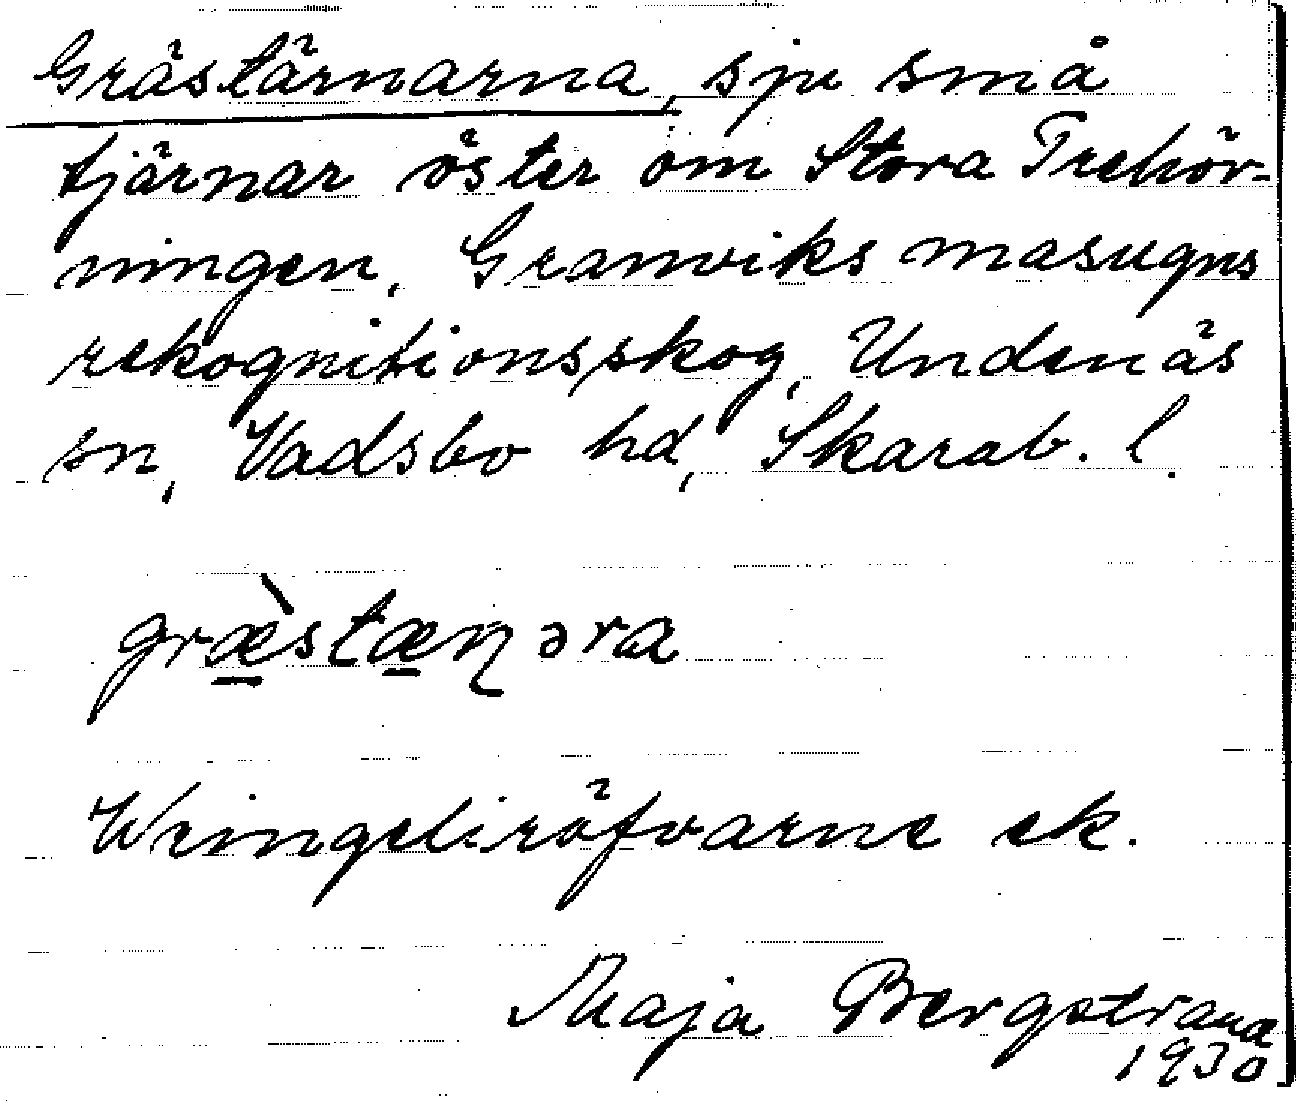 Grästärnarna, sju små
tjärnar öster om Stora Trehör-
ningen, Granviks masugns
rekognitionsskog, Undenäs
sn, Vadsbo hd, Skarab. l.
græ̀stæɳəra
Wringeliräfvarne ek.
Maja Bergstrand
1930